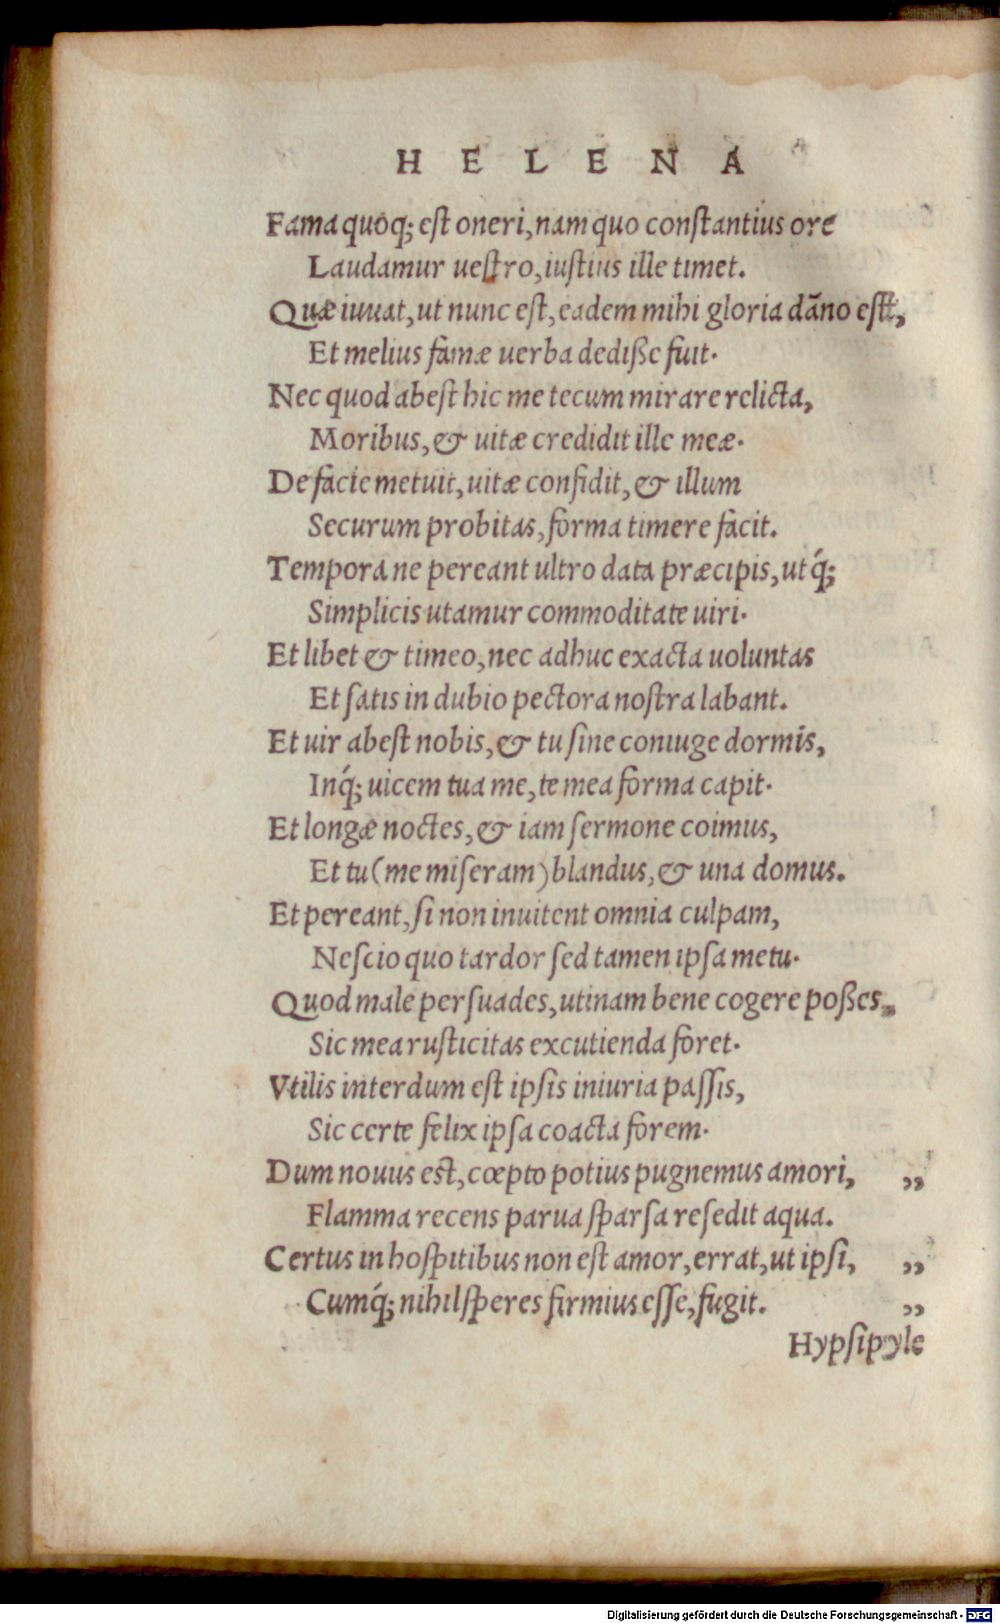 HELENA
Fama quoq; est oneri, nam quo constantius ore
Laudamur uestro, iustius ille timet.
Quæ iuuat, ut nunc est, eadem mihi gloria dãno est,
Et melius famæ uerba dediße fuit.
Nec quod abest hic me tecum mirare relicta,
Moribus, & uitæ credidit ille meæ.
De facie metuit, uitæ confidit, & illum
Securum probitas, forma timere facit.
Tempora ne pereant ultro data præcipis, utq́;
Simplicis utamur commoditate uiri.
Et libet & timeo, nec adhuc exacta uoluntas
Et satis in dubio pectora nostra labant.
Et uir abest nobis, & tu sine coniuge dormis,
Inq́; uicem tua me, te mea forma capit.
Et longæ noctes, & iam sermone coimus,
Et tu (me miseram) blandus, & una domus.
Et pereant, si non inuitent omnia culpam,
Nescio quo tardor sed tamen ipsa metu.
Quod male persuades, utinam bene cogere poßes,
Sic mea rusticitas excutienda foret.
Vtilis interdum est ipsis iniuria passis,
Sic certe felix ipsa coacta forem.
Dum nouus est, cœpto potius pugnemus amori, „
Flamma recens parua sparsa resedit aqua.
Certus in hospitibus non est amor, errat, ut ipsi, „
Cumq́; nihil speres firmius esse, fugit. „
Hypsipyle
Digitalisierung gefördert durch die Deutsche Forschungsgemeinschaft - DFG